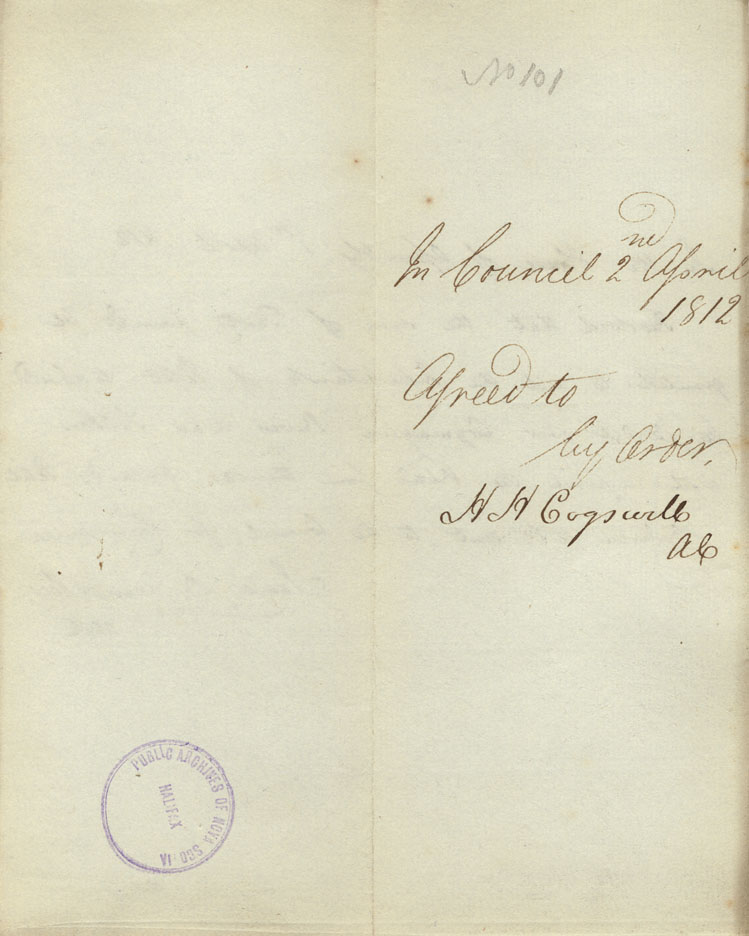 No 101
In Council 2nd April
1812
Agreed to
by Order,
H H Cogswell
AC
PUBLIC ARCHIVES OF NOVA SCOTIA
HALIFAX